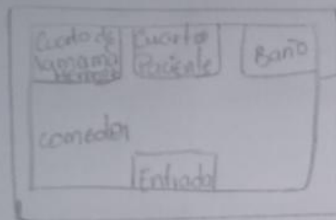 Cuarto de
la mama
Cuarto
Paciente
Baño
comedor
Entrada